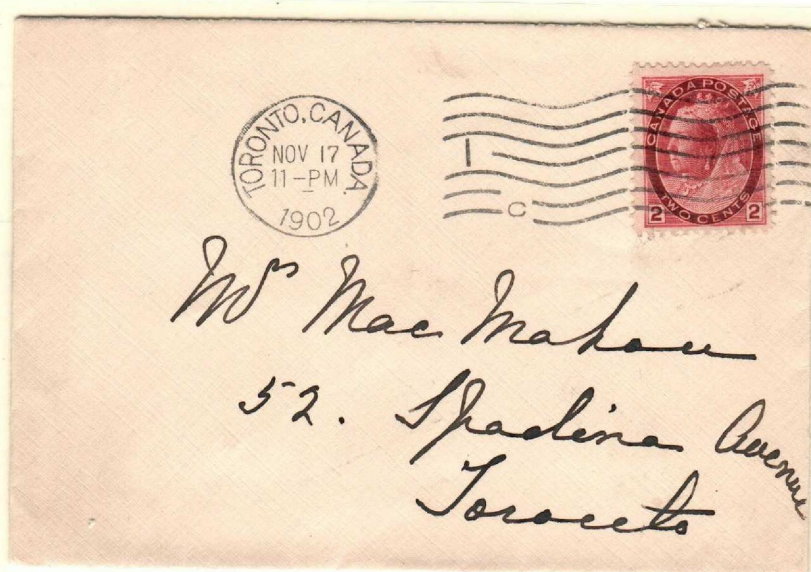 TORONTO, CANADA.
NOV 17
11-PM
1902
I
C
CANADA POSTAGE
TWO CENTS
2 2
Mrs Mac Mahon
52. Spadina Avenue
Toronto